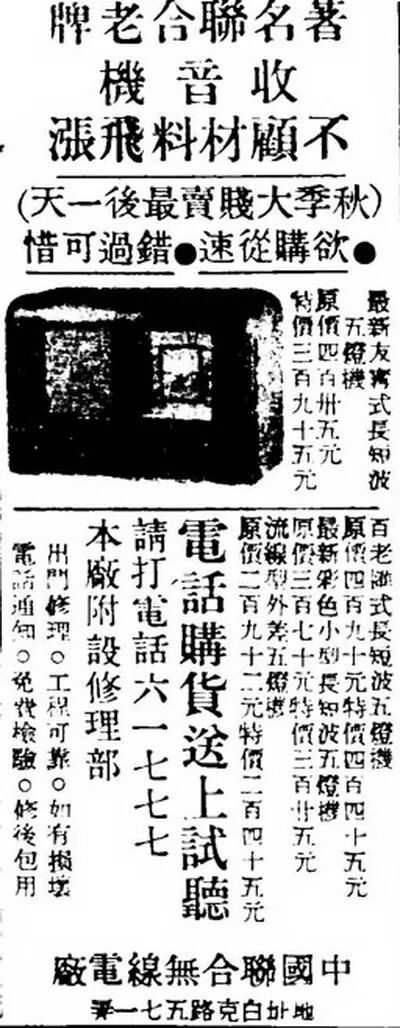 著名聯合老牌
收音機
不顧材料飛漲
(秋季大賤賣最後一天)
●欲購從速●錯過可惜
最新友寗式長短波
五燈機
原價四百卅五元
特價三百九十五元
百老匯式長短波五燈機
原價四百九十元特價四百四十五元
最新彩色小型長短波五燈機
原價三百七十元特價三百廿五元
流線型外差五燈機
原價二百九十二元特價二百四十五元
電話購貨送上試聽
請打電話六一七七七
本廠附設修理部
出門修理○工程可靠○如有損壞
電話通知○免費檢驗○修後包用
中國聯合無線電廠
地址白克路五七一弄